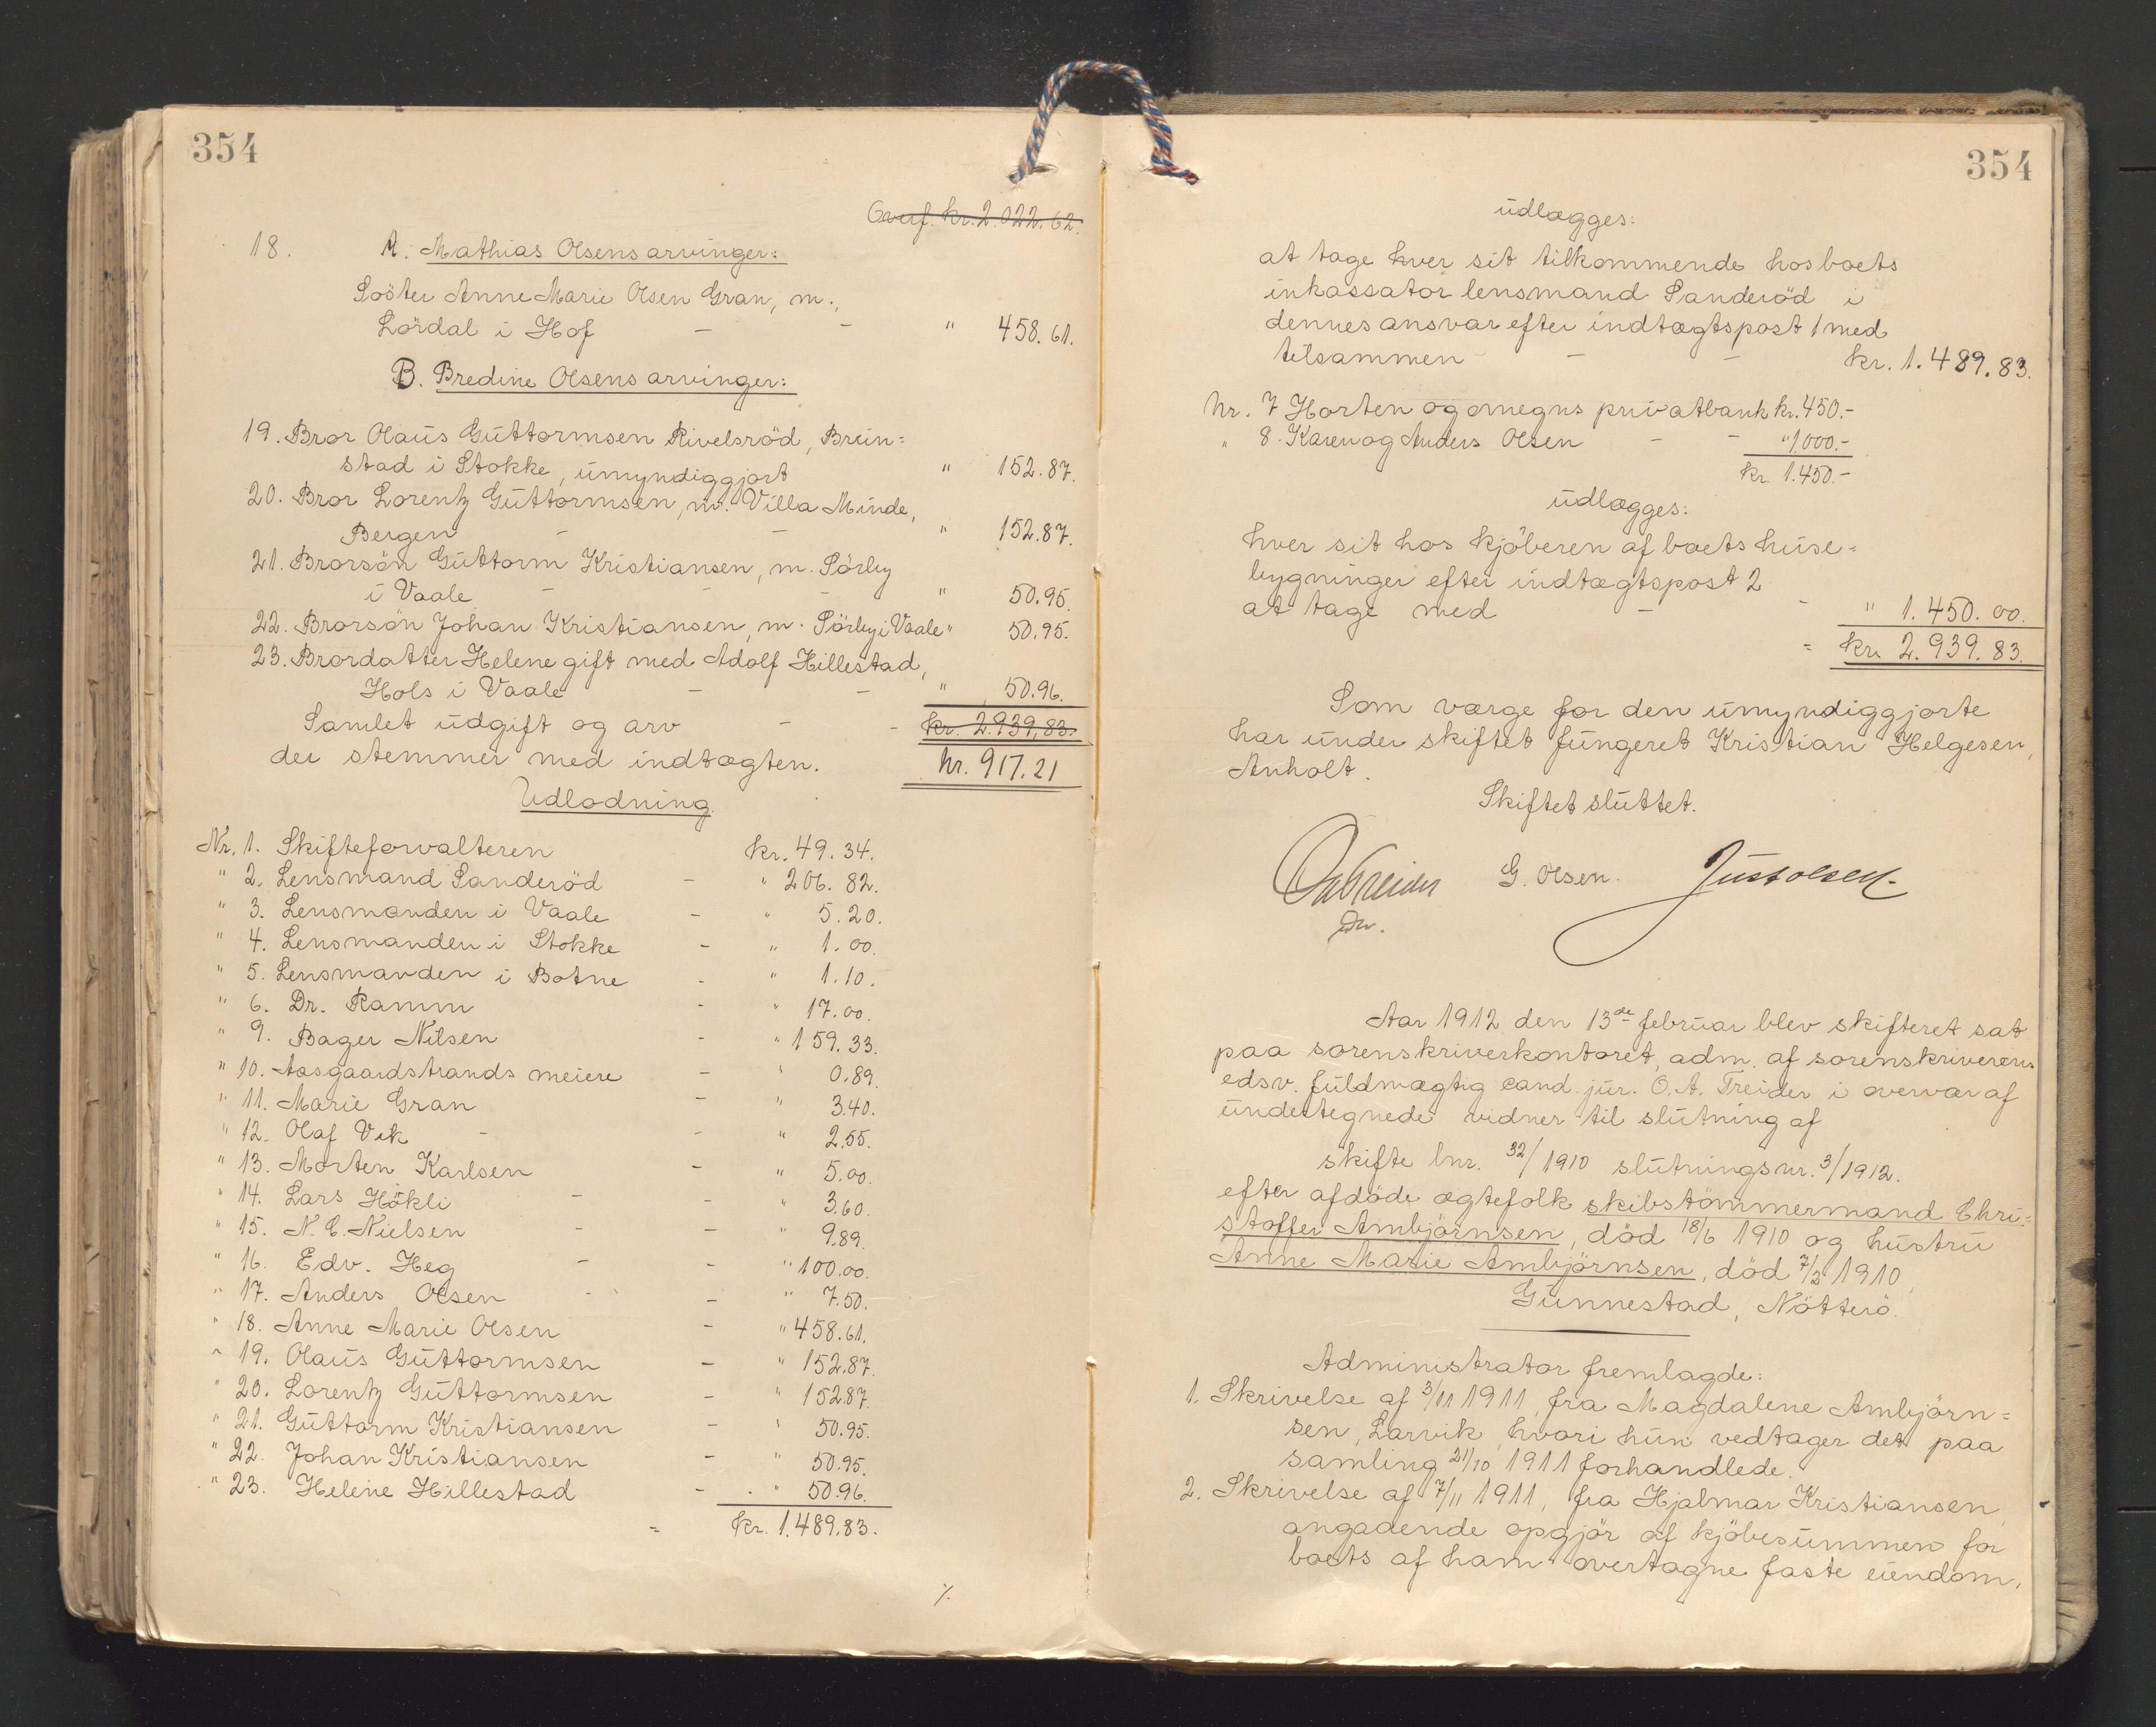 354
Overf. kr. 2.022.62.
18. A. Mathias Olsens arvinger:
Söster Anne Marie Olsen Gran, m.,
Lördal i Hof - - " 458.61.
B. Bredine Olsens arvinger:
19. Bror Olaus Guttormsen Rivelsröd, Brein=
stad i Stokke, umyndiggjort " 152.87.
20. Bror Lorentz Guttormsen, m. Villa Minde,
Bergen - - " 152.87.
21. Brorsön Guttorm Kristiansen, m. Sörby
i Vaale - - - " 50.95.
22. Brorsön Johan Kristiansen, m. Sörby i Vaale " 50.95.
23. Brordatter Helene gift med Adolf Hillestad,
Hols i Vaale - - " 50.96.
Samlet udgift og arv - - kr. 2.939,83.
der stemmer med indtægten. kr. 917.21
Udlodning.
Nr. 1. Skifteforvalteren kr. 49.34.
" 2. Lensmand Sanderöd - " 206.82.
" 3. Lensmanden i Vaale - " 5.20.
" 4. Lensmanden i Stokke - " 1.00.
" 5. Lensmanden i Botne - " 1.10.
" 6. Dr. Ramm - " 17.00.
" 9. Bager Nilsen - " 159.33.
" 10. Aasgaardstrands meiere - " 0.89.
" 11. Marie Gran - " 3.40.
" 12. Olaf Vik - - " 2.55.
" 13. Morten Karlsen - " 5.00.
" 14. Lars Hökli - - " 3.60.
" 15. N. C. Nielsen - - " 9.89.
" 16. Edv. Heg - - " 100.00.
" 17. Anders Olsen - - " 7.50.
" 18. Anne Marie Olsen - " 458.61.
" 19. Olaus Guttormsen - " 152.87.
" 20. Lorentz Guttormsen - " 152.87.
" 21. Guttorm Kristiansen - " 50.95.
" 22. Johan Kristiansen - " 50.95.
" 23. Helene Hillestad - - " 50.96.
= kr. 1.489.83.
./.
354
udlægges:
at tage hver sit tilkommende hos boets
inkassator lensmand Sanderöd i
dennes ansvar efter indtægtspost 1 med
tilsammen - - kr. 1.489.83.
Nr. 7 Horten og omegns privatbank kr. 450.-
" 8. Karen og Anders Olsen - - " 1000.-
kr. 1.450.-
udlægges:
hver sit hos kjöberen af boets huse=
bygninger efter indtægtspost 2
at tage med - - " 1.450.00.
= kr. 2.939.83.
Som værge for den umyndiggjorte
har under skiftet fungeret Kristian Helgesen,
Anholt.
Skiftet sluttet.
G. Olsen. Just Olsen.
Aar 1912 den 13de februar blev skifteret sat
paa sorenskriverkontoret, adm. af sorenskriverens
edsv. fuldmægtig cand. jur. O. A. Treider i overvær af
undertegnede vidner til slutning af
skifte lnr. 32/1910 slutningsnr. 3/1912.
efter afdöde ægtefolk skibstömmermand Chri=
stoffer Ambjörnsen, död 18/6 1910 og hustru
Anne Marie Ambjörnsen, död 7/2 1910,
Gunnestad, Nötterö.
Administrator fremlagde:
1. Skrivelse af 3/11 1911, fra Magdalene Ambjörn=
sen, Larvik, hvori hun vedtager det paa
samling 21/10 1911 forhandlede.
2. Skrivelse af 7/11 1911, fra Hjalmar Kristiansen
angaaende opgjör af kjöbesummen for
boets af ham overtagne faste eiendom,